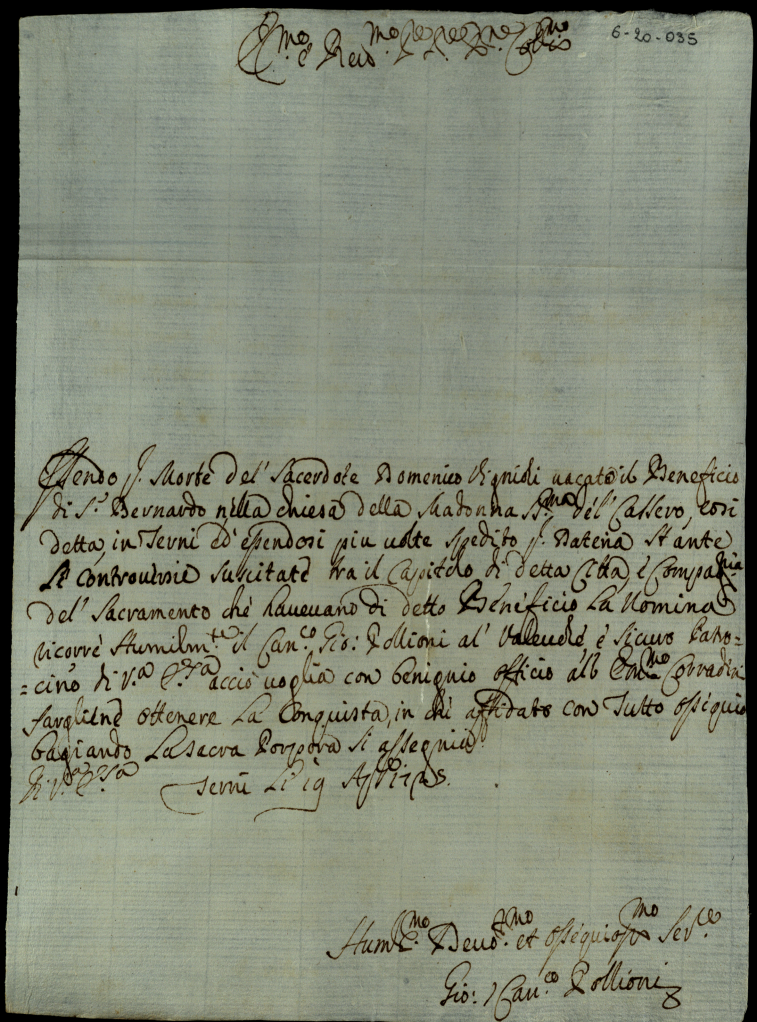 6-20-035
Em.mo e Rev.mo
Essendo p. Morte del' Sacerdote Domenico vacato il Beneficio
di S. Bernardo nella chiesa della Madonna SS.ma del' Cassero, cosi
detta, in Terni ed' essendosi piu volte spedito p. Dateria stante
Le controversie suscitate tra il Capitolo di detta Città, e Compa.nia
del' Sacramento che havevano di detto Beneficio La Nomina
ricorre Humilm.te il Can.co Gio: Pollioni al' Valevole e sicuro Patro=
=cinio di V.ra acciò voglia con benignio officio all' Em.mo Corradini
farglene ottenere La Conquista, in che affidato con Tutto ossequio
bagiando La Sacra Porpora si assegnia
Di V.ra
Terni Li 19
Hum.mo Devo.mo et ossequios.mo Ser.e
Gio: Can.co Pollioni